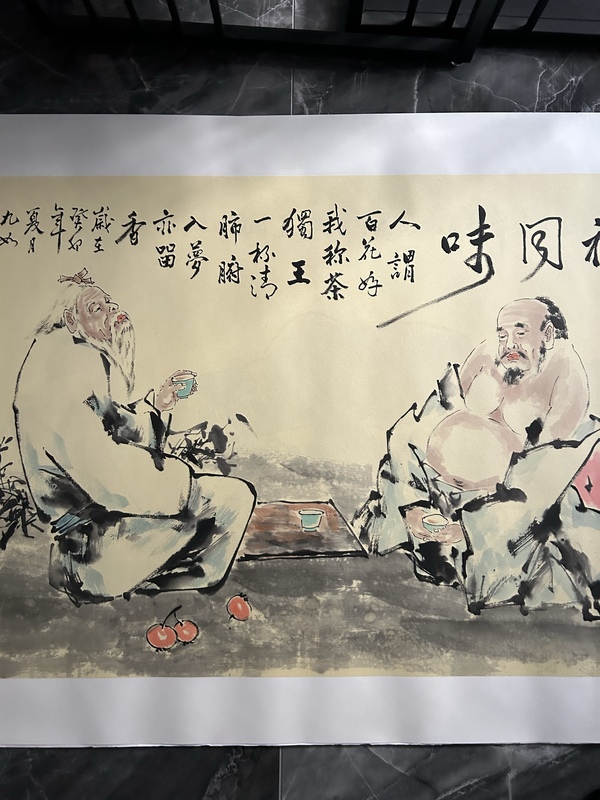 同味
人謂
百花好
我称茶
獨王
一杯清
肺腑
入夢
亦留
香
歲在
癸卯
年
夏月